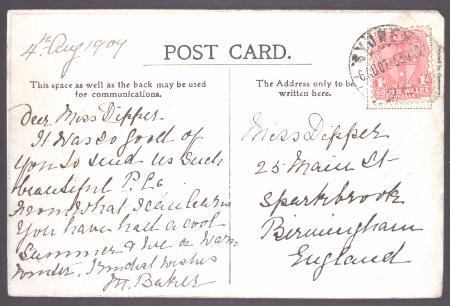 4th Aug 1907
POST CARD.
This space as well as the back may be used
for communications.
The Address only to be
written here.
SYDNEY
SOUTH WALES
Dear Miss Dipper
It was so good of
you to send us such
beautiful P. Cs
From what I can learn
you have had a cool
summer & we a warm
winter, Kindest wishes
M. Baker
Miss Dipper
25 Main St
Sparkbrook
Birmingham
England